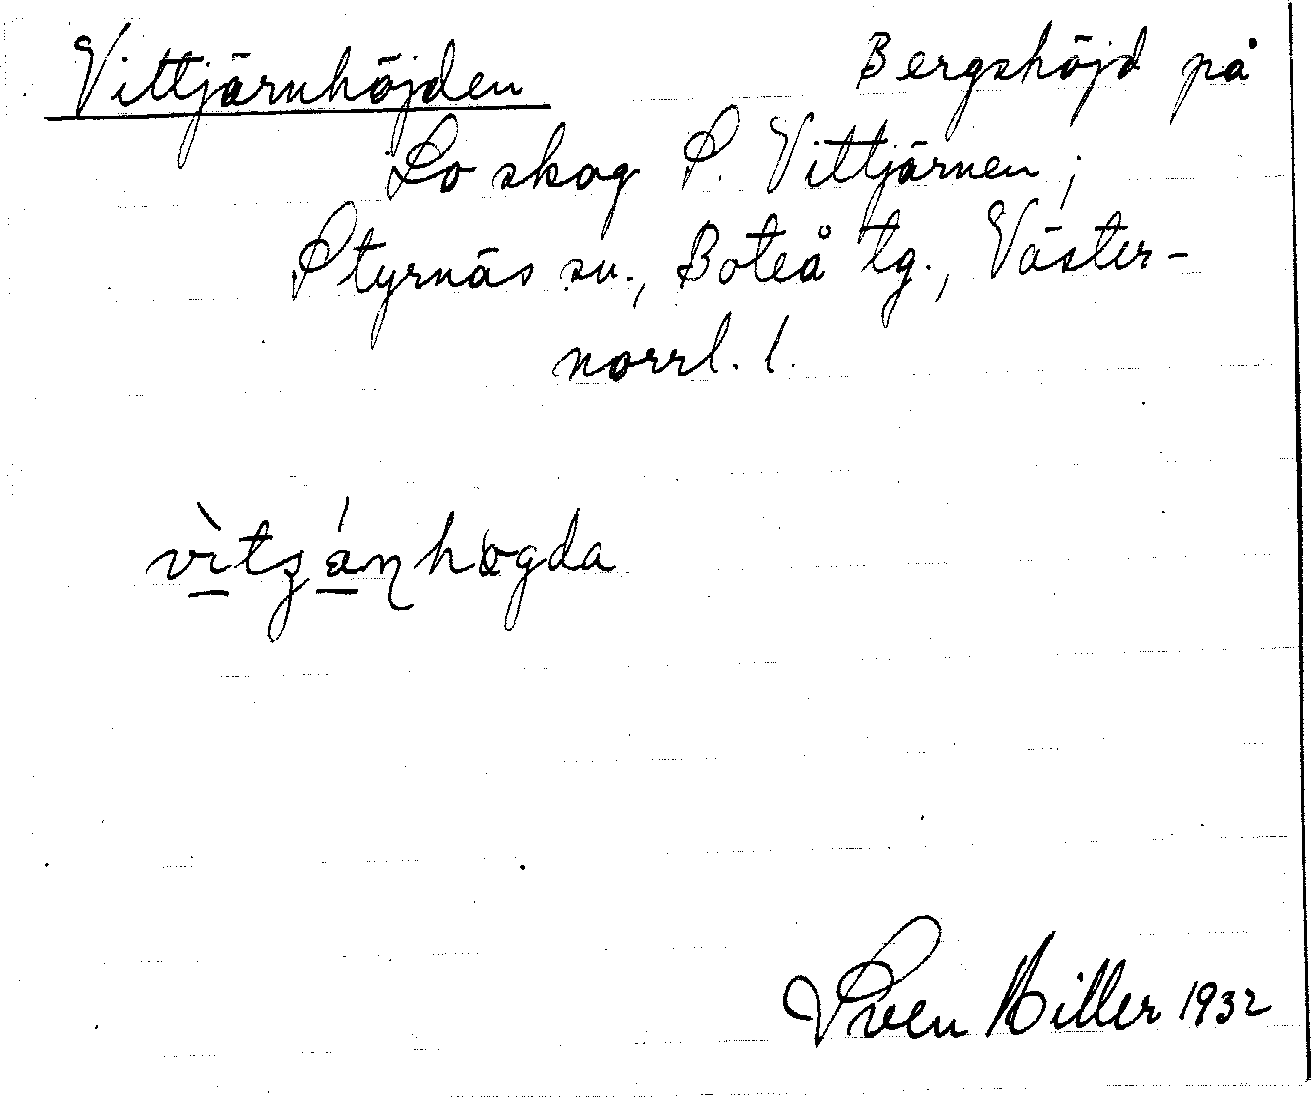 Vittjärnhöjden Bergshöjd på
Lo skog S. Vittjärnen;
Styrnäs sn., Boteå tg., Väster-
norrl. l.
vìtʒáɳhøgda
Sven Hiller 1932